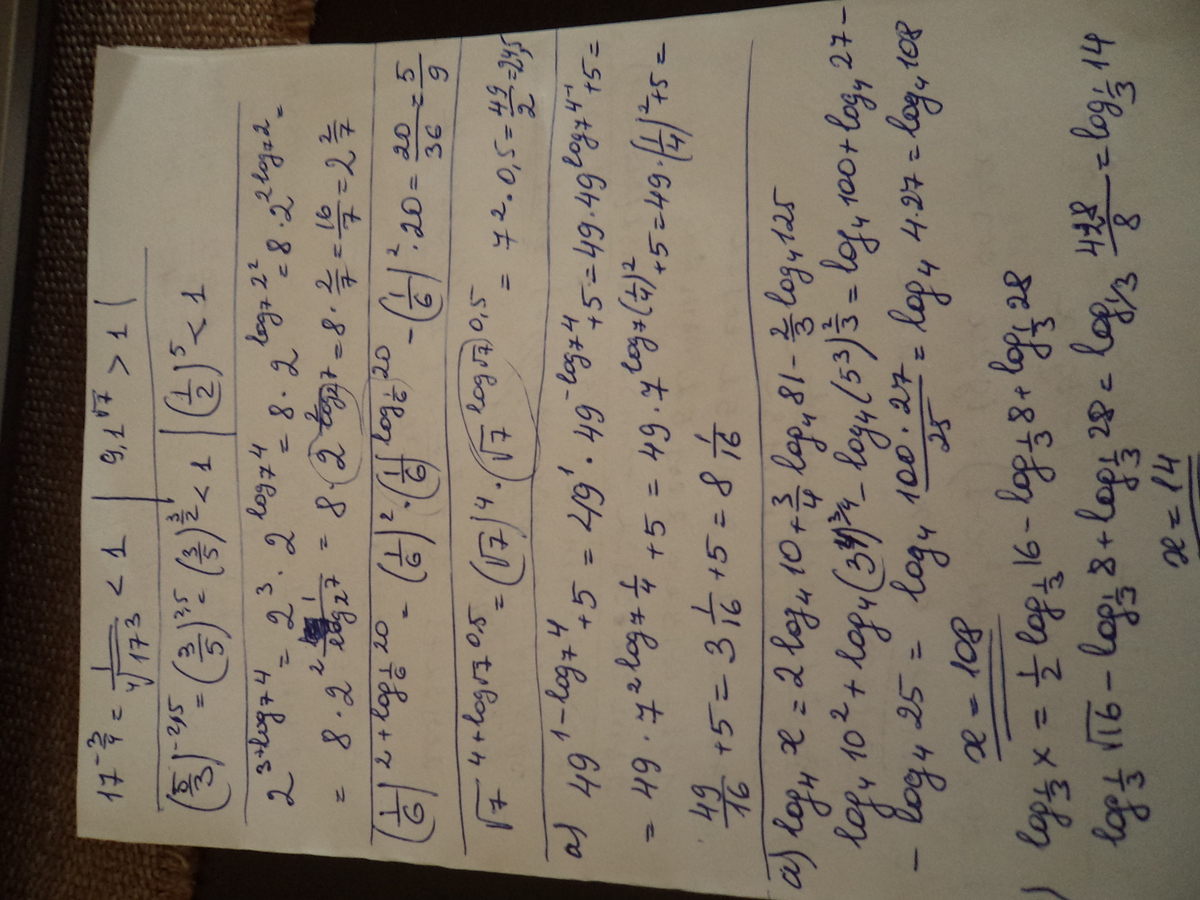 17^{-3/4} = 1/\sqrt[4]{17^3} < 1 | 9,1^{√7} > 1 |
(5/3)^{-2,5} = (3/5)^{2,5} = (3/5)^{3/2} < 1 | (1/2)^5 < 1
2^{3+log_7 4} = 2^3 · 2^{log_7 4} = 8 · 2^{log_7 2^2} = 8 · 2^{2 log_7 2} =
= 8 · 2^{2 1/log_2 7} = 8 · 2^{2/log_2 7} = 8 · 2/7 = 16/7 = 2 2/7
(1/6)^{2+log_{1/6} 20} = (1/6)^2 · (1/6)^{log_{1/6} 20} - (1/6)^2 · 20 = 20/36 = 5/9
√7^{4+log_{√7} 0,5} = (√7)^4 · √7^{log_{√7} 0,5} = 7^2 · 0,5 = 49/2 = 24,5
a) 49^{1-log_7 4} + 5 = 49^1 · 49^{-log_7 4} + 5 = 49 · 49^{log_7 4^{-1}} + 5 =
= 49 · 7^{2 log_7 1/4} + 5 = 49 · 7^{log_7 (1/4)^2} + 5 = 49 · (1/4)^2 + 5 =
49/16 + 5 = 3 1/16 + 5 = 8 1/16
a) log_4 x = 2 log_4 10 + 3/4 log_4 81 - 2/3 log_4 125
log_4 10^2 + log_4 (3^4)^{3/4} - log_4 (5^3)^{2/3} = log_4 100 + log_4 27 -
- log_4 25 = log_4 100 · 27/25 = log_4 4·27 = log_4 108
x = 108
) log_{1/3} x = 1/2 log_{1/3} 16 - log_{1/3} 8 + log_{1/3} 28
log_{1/3} √16 - log_{1/3} 8 + log_{1/3} 28 = log_{1/3} 4·28/8 = log_{1/3} 14
x = 14